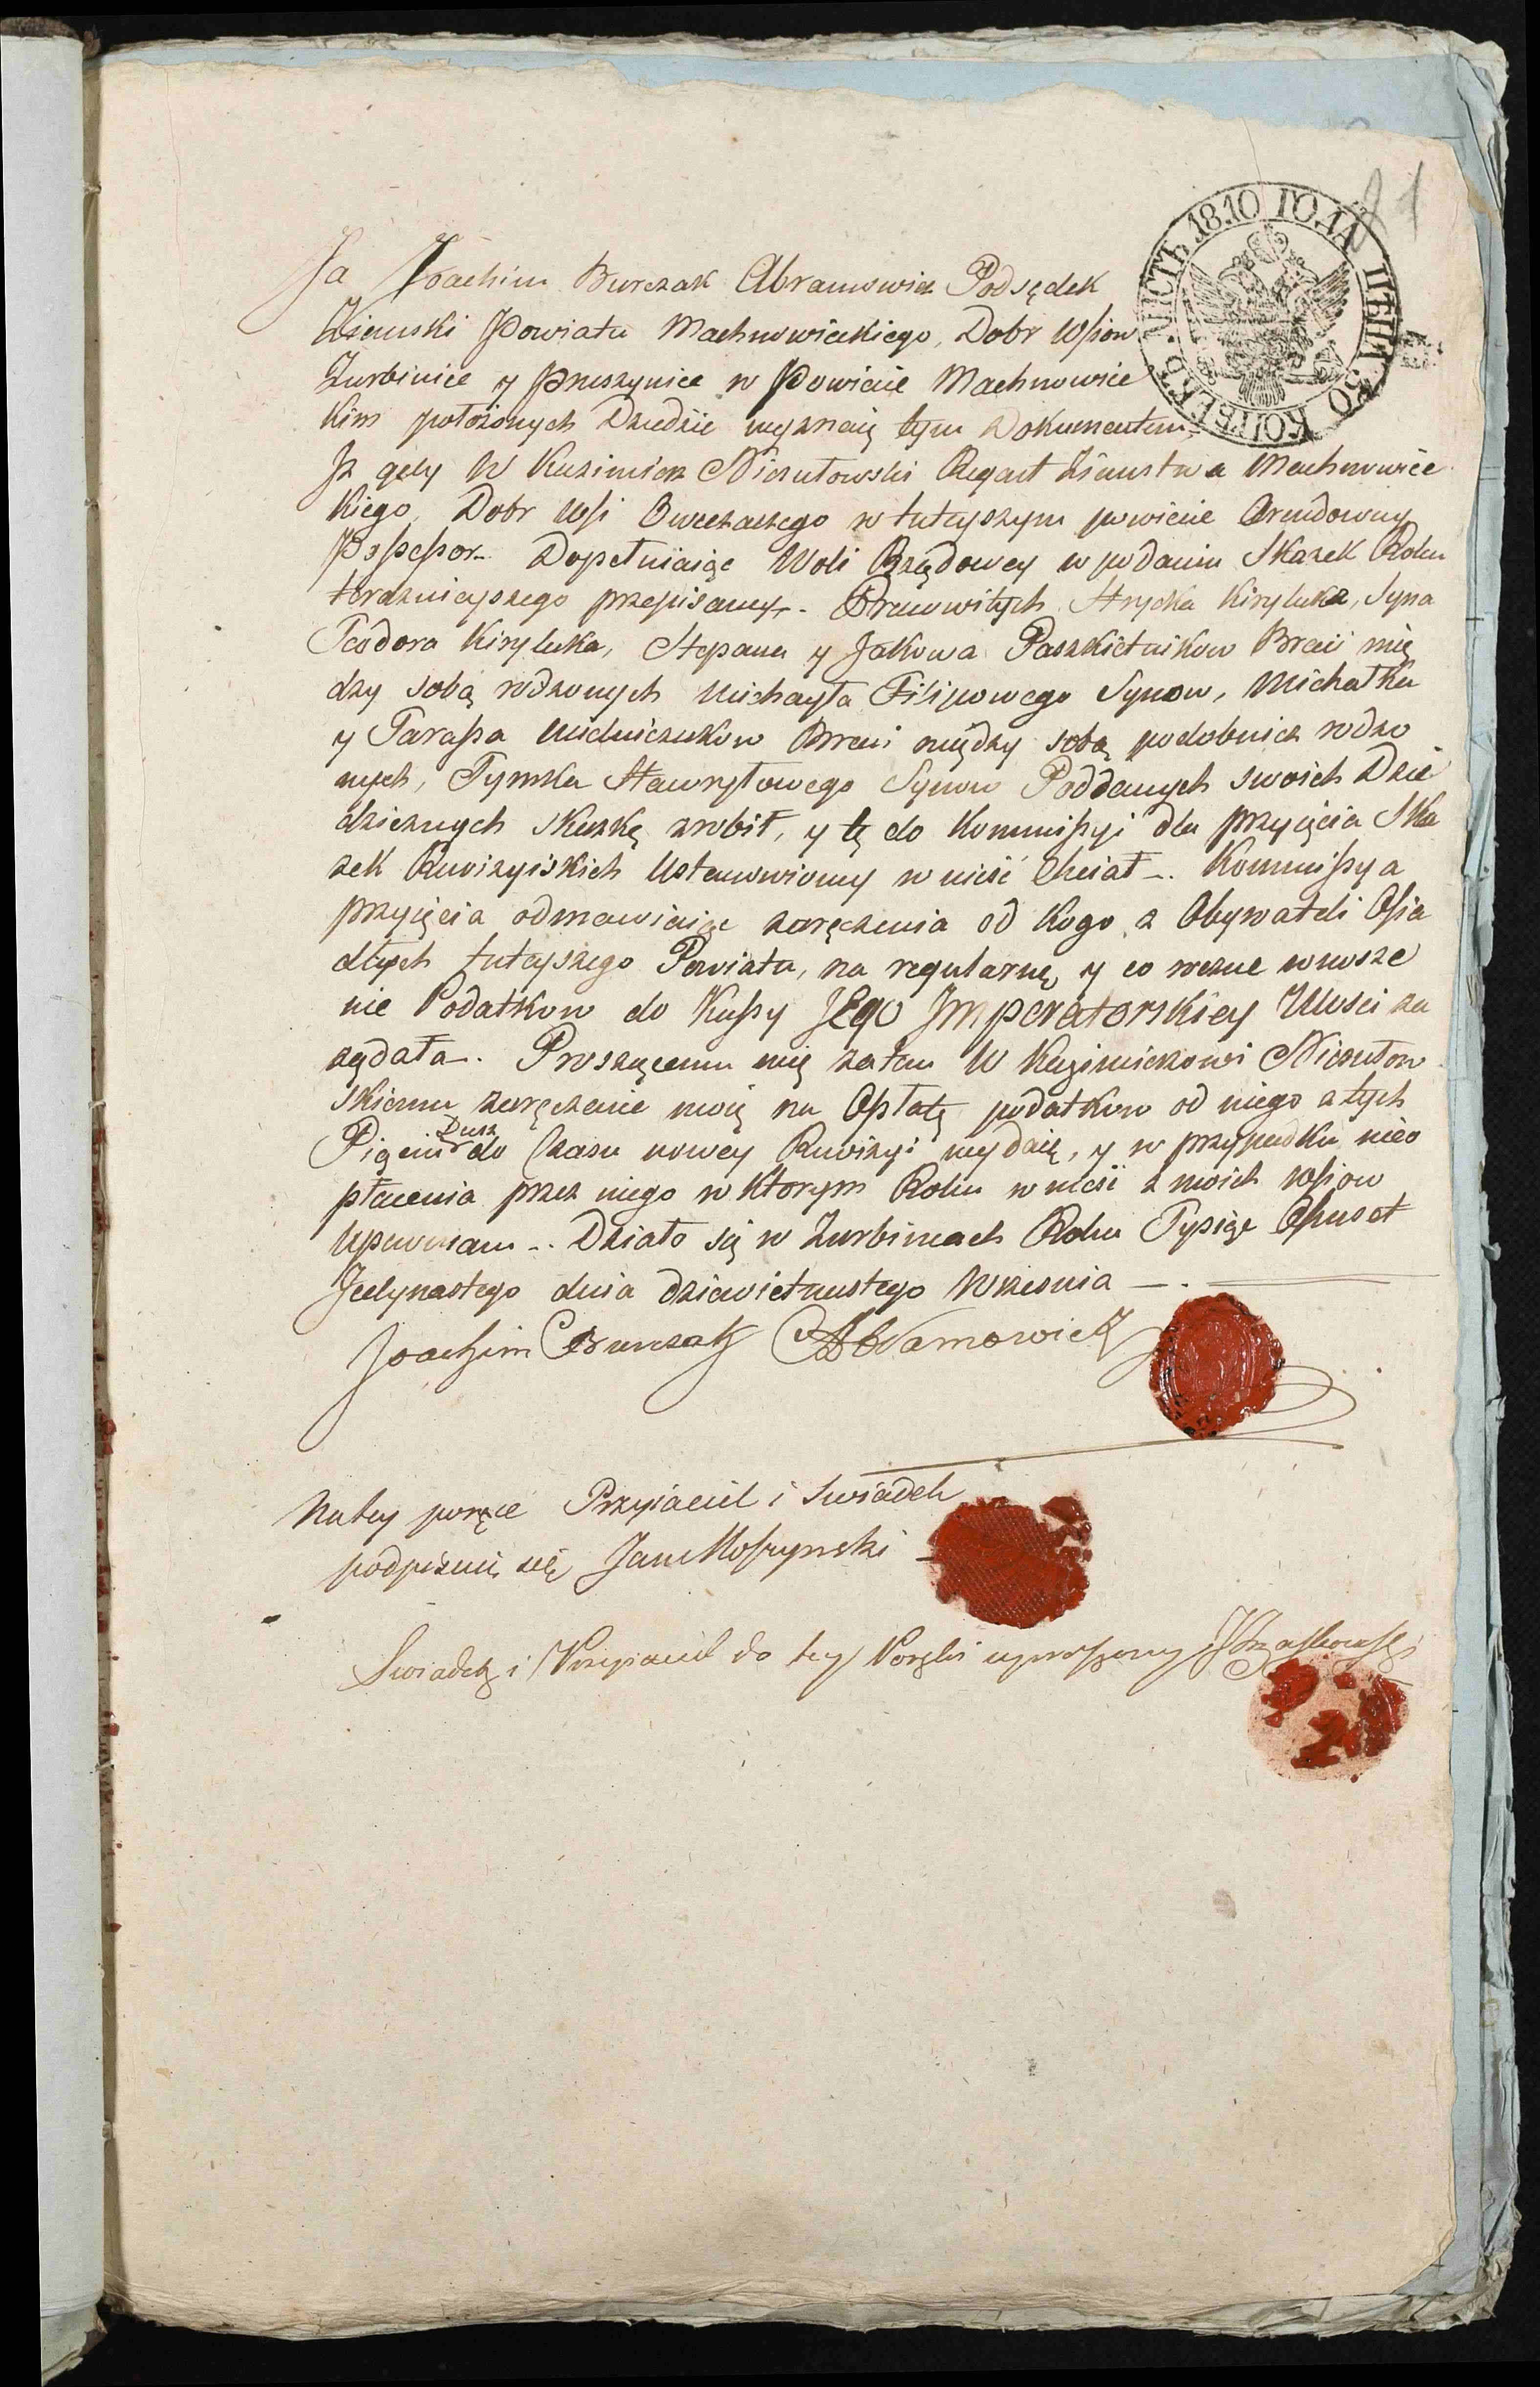 81
ЛИСТЪ 1810 ГОДА ЦѢНА 30 КОПѢЕКЪ
Ja Joachim Burczak Abramowicz Podsędek
Ziemski Powiatu Machnowieckiego, Dobr Wsiow
Żurbiniec y Pruszyniec w Powiecie Machnowiec
kim położonych Dziedzic wyznaię tym Dokumentem
Iż gdy W Kazimierz Niezutowski Regent Ziemstwa Machnowiec
kiego, Dobr Wsi Oweczaczego w tuteyszym powiecie Arendowny
Possessor. Dopełniaiąc Woli Rządowey w podaniu Skazek Roku
teraznieyszego przepisaney. Hrycka Kiryluka, Syna
Teodora Kiryluka, Stepana y Jakowa Paszkietnikow Braci mię
dzy sobą rodzonych Michayła Filipowego Synow, Michałka
y Tarassa Mielniczukow Braci między sobą podobnież rodzo
nych, Tymka Hawryłowego Synow Poddanych swoich Dzie
dzicznych skazkę zrobił, y tę do Kommissyi dla przyięcia Ska
zek Rewizyiskich Ustanowioney wnieść Chciał. Kommissya
przyięcia odmawiaiąc zaręczenia od kogo z Obywateli Osia
dłych tuteyszego Powiatu, na regularne y co roczne wnosze
nie Podatkow do Kassy Jego Imperatorskiey Mości za
żądała. Proszącemu mię zatem W Kazimierzowi Niezutow
skiemu zaręczenie moię na Opłatę podatkow od niego z tych
Pięciu Dusz do Czasu nowey Rewizyi wydaię, y w przypadku nieo
płacenia przez niego w ktorym Roku wnieść z moich Wsiow
upewniam. Działo się w Żurbincach Roku Tysiąc Ośmset
Jedynastego dnia dziewietnastego Wrzesnia
Joachim Burczak Abramowicz
Na tey poręce Przyiaciel i Swiadek
podpisuię się Jan Moszynski
Swiadek i Przyiaciel do tey Poręki uproszony